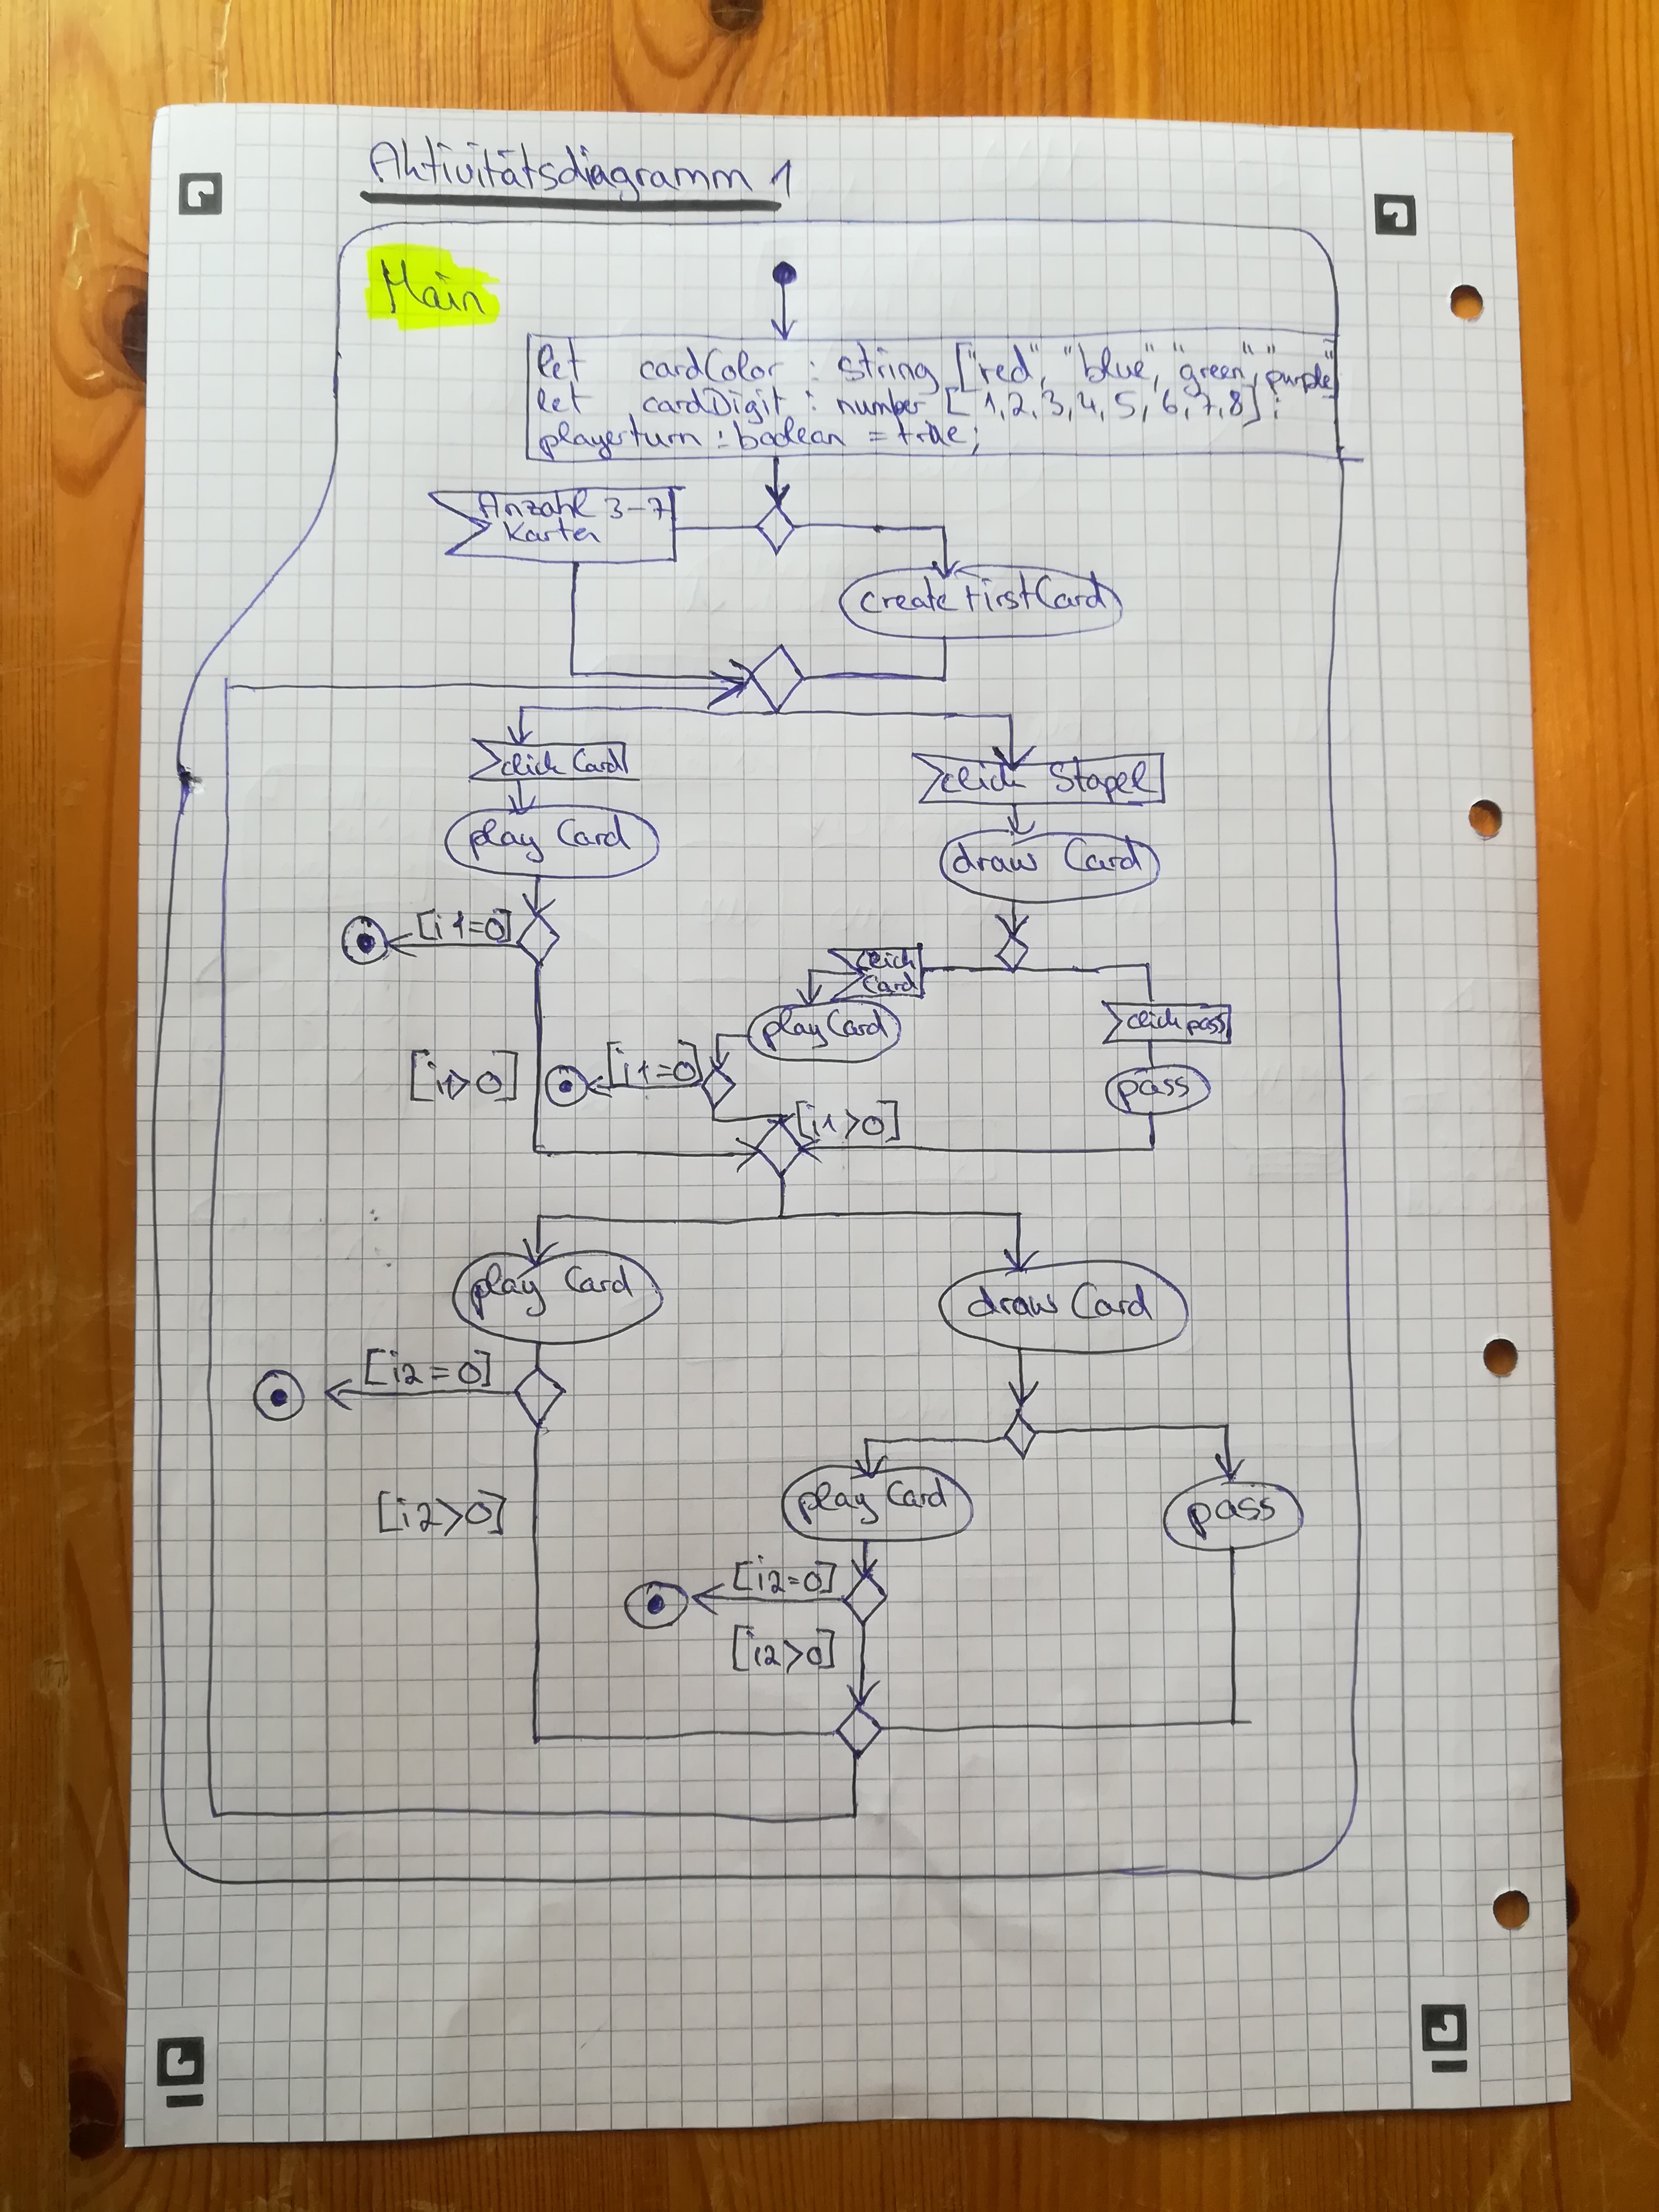 Aktivitätsdiagramm 1
Main
let cardColor : string ["red", "blue", "green", "purple"
let cardDigit : number [1,2,3,4,5,6,7,8];
playerturn : boolean = true;
Anzahl 3-7
Karten
create FirstCard
click Card
click Stapel
play Card
draw Card
[i1=0]
click
Card
play Card
click pass
[i1>0]
[i1=0]
pass
[i1>0]
play Card
draw Card
[i2=0]
play Card
pass
[i2>0]
[i2=0]
[i2>0]